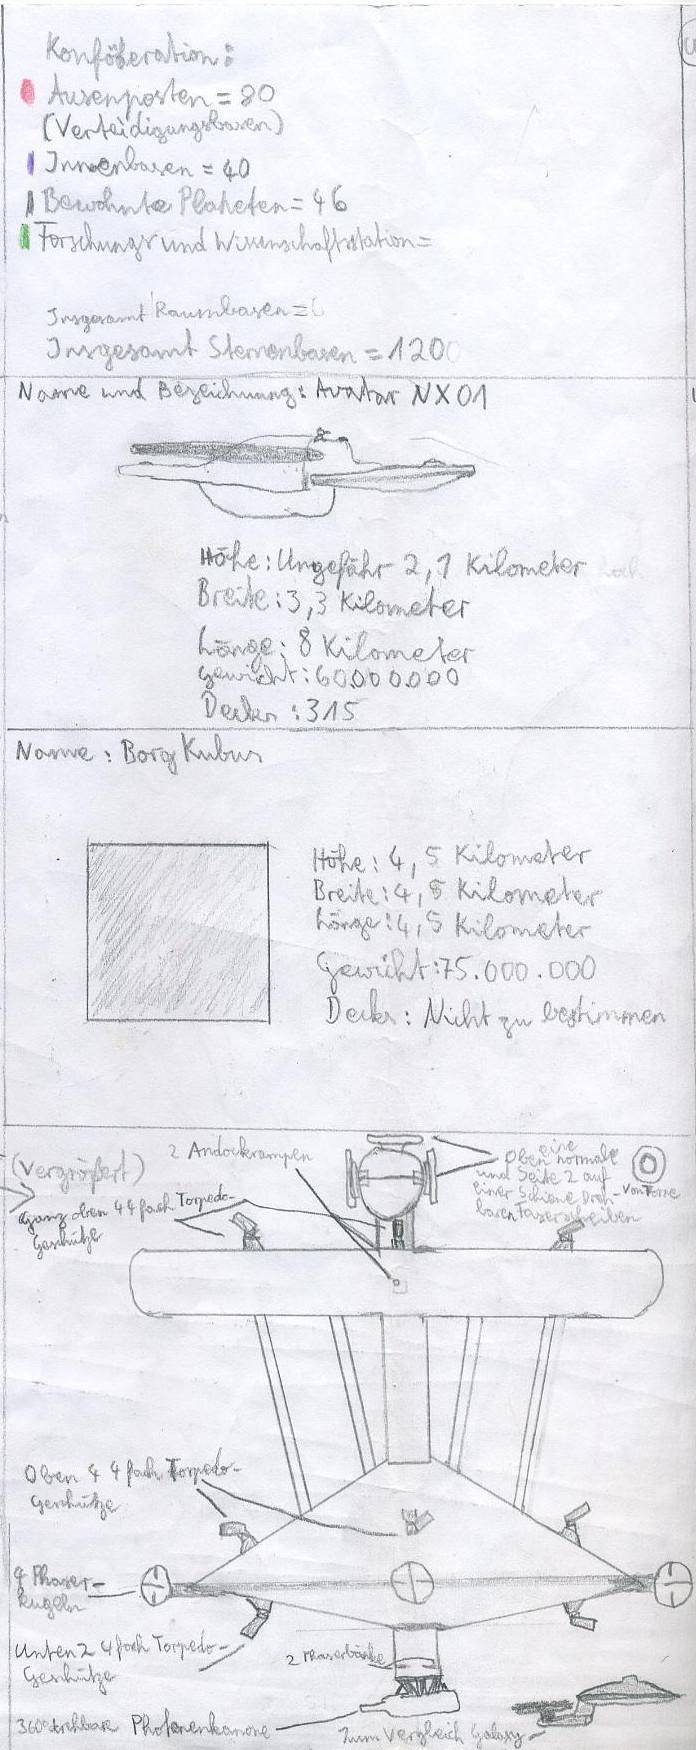 Konföderation:
Ausenposten = 80
(Verteidigungsbasen)
Innenbasen = 40
Bewohnte Planeten = 46
Forschungs und Wissenschaftsstation =
Insgesamt Raumbasen =
Insgesamt Sternenbasen = 1200
Name und Bezeichnung: Avatar NX01
Höhe: Ungefähr 2,1 Kilometer hoch
Breite: 3,3 Kilometer
Länge: 8 Kilometer
Gewicht: 60.000.000
Decks: 315
Name: Borg Kubus
Höhe: 4,5 Kilometer
Breite: 4,5 Kilometer
Länge: 4,5 Kilometer
Gewicht: 75.000.000
Decks: Nicht zu bestimmen
(Vergrößert)
2 Andockrampen
Oben eine normale
und Seite 2 auf
einer Schiene Dreh-
baren
Von Forne
Ganz oben 4 4fach Torpedo-
Geschütze
Oben 4 4fach Torpedo-
Geschütze
4 Phaser-
kugeln
Unten 2 4fach Torpedo-
Geschütze
2 Phaserbänke
360° drehbare Photonenkanone
Zum Vergleich Galaxy-